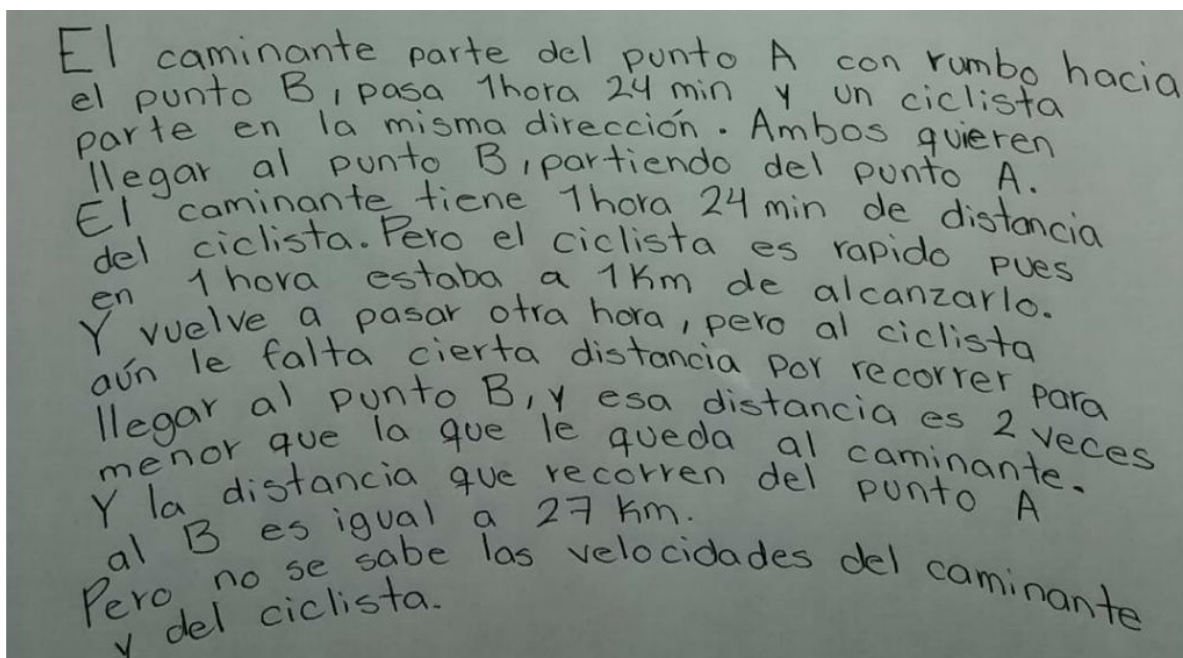 El caminante parte del punto A con rumbo hacia
el punto B, pasa 1hora 24 min y un ciclista
parte en la misma dirección. Ambos quieren
llegar al punto B, partiendo del punto A.
El caminante tiene 1hora 24 min de distancia
del ciclista. Pero el ciclista es rapido pues
en 1 hora estaba a 1Km de alcanzarlo.
Y vuelve a pasar otra hora, pero al ciclista
aún le falta cierta distancia por recorrer para
llegar al punto B, y esa distancia es 2 veces
menor que la que le queda al caminante.
Y la distancia que recorren del punto A
al B es igual a 27 Km.
Pero no se sabe las velocidades del caminante
y del ciclista.